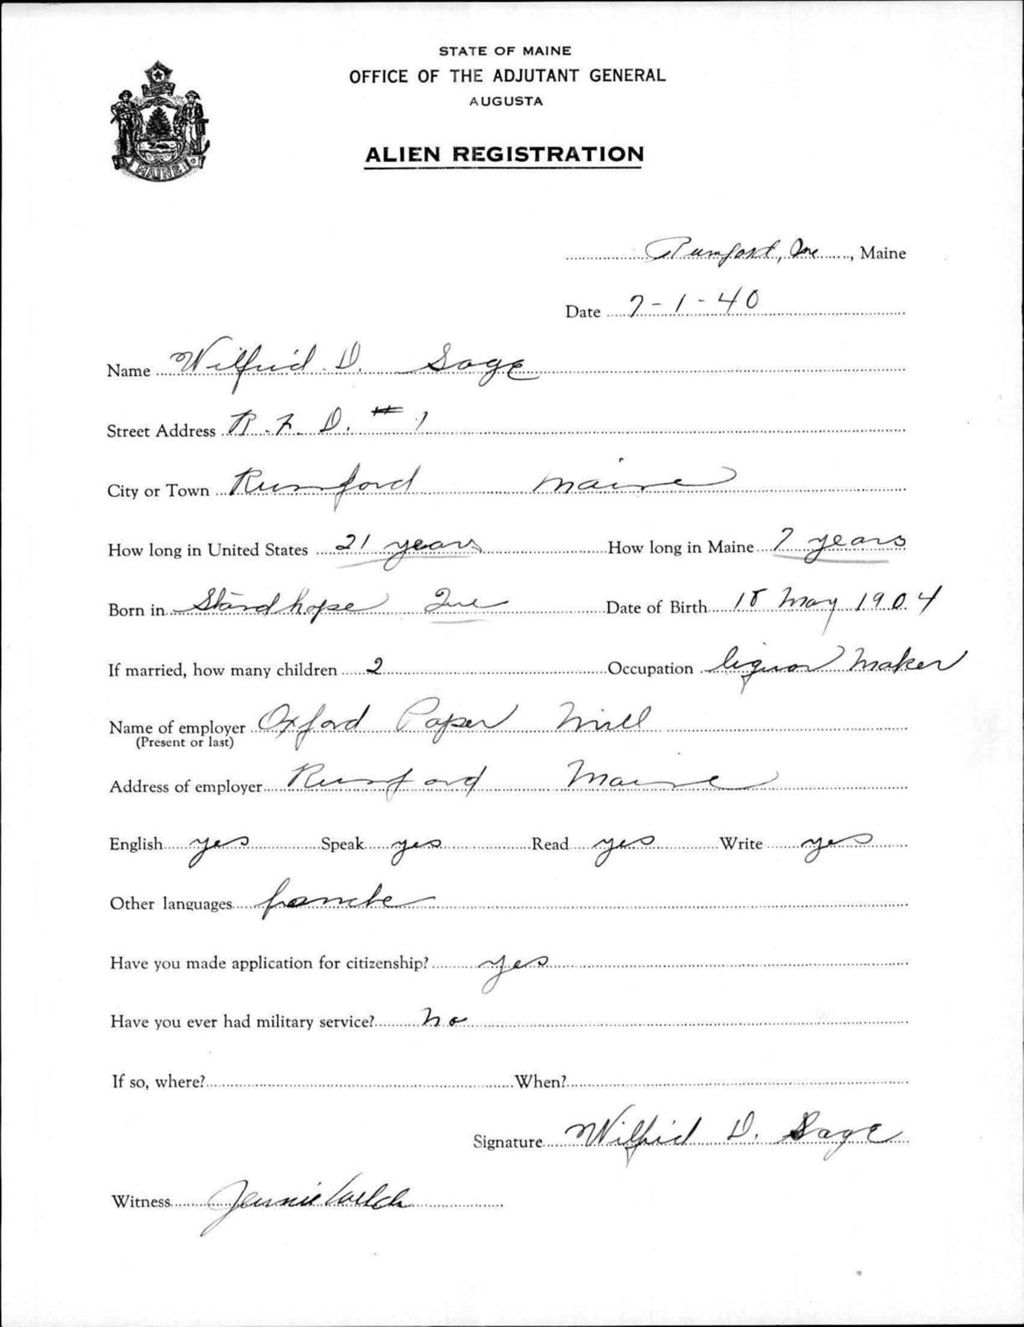 STATE OF MAINE
OFFICE OF THE ADJUTANT GENERAL
AUGUSTA
ALIEN REGISTRATION
Rumford, Me, Maine
Date 7-1-40
Name Wilfrid D. Sage
Street Address R.F.D. #1
City or Town Rumford Maine
How long in United States 21 years How long in Maine 7 years
Born in Standhope Que Date of Birth 18 May 1904
If married, how many children 2 Occupation liquor Maker
Name of employer Oxford Paper Mill
(Present or last)
Address of employer Rumford Maine
English yes Speak yes Read yes Write yes
Other languages
Have you made application for citizenship? yes
Have you ever had military service? no
If so, where? When?
Signature Wilfrid D. Sage
Witness Jennie Welch